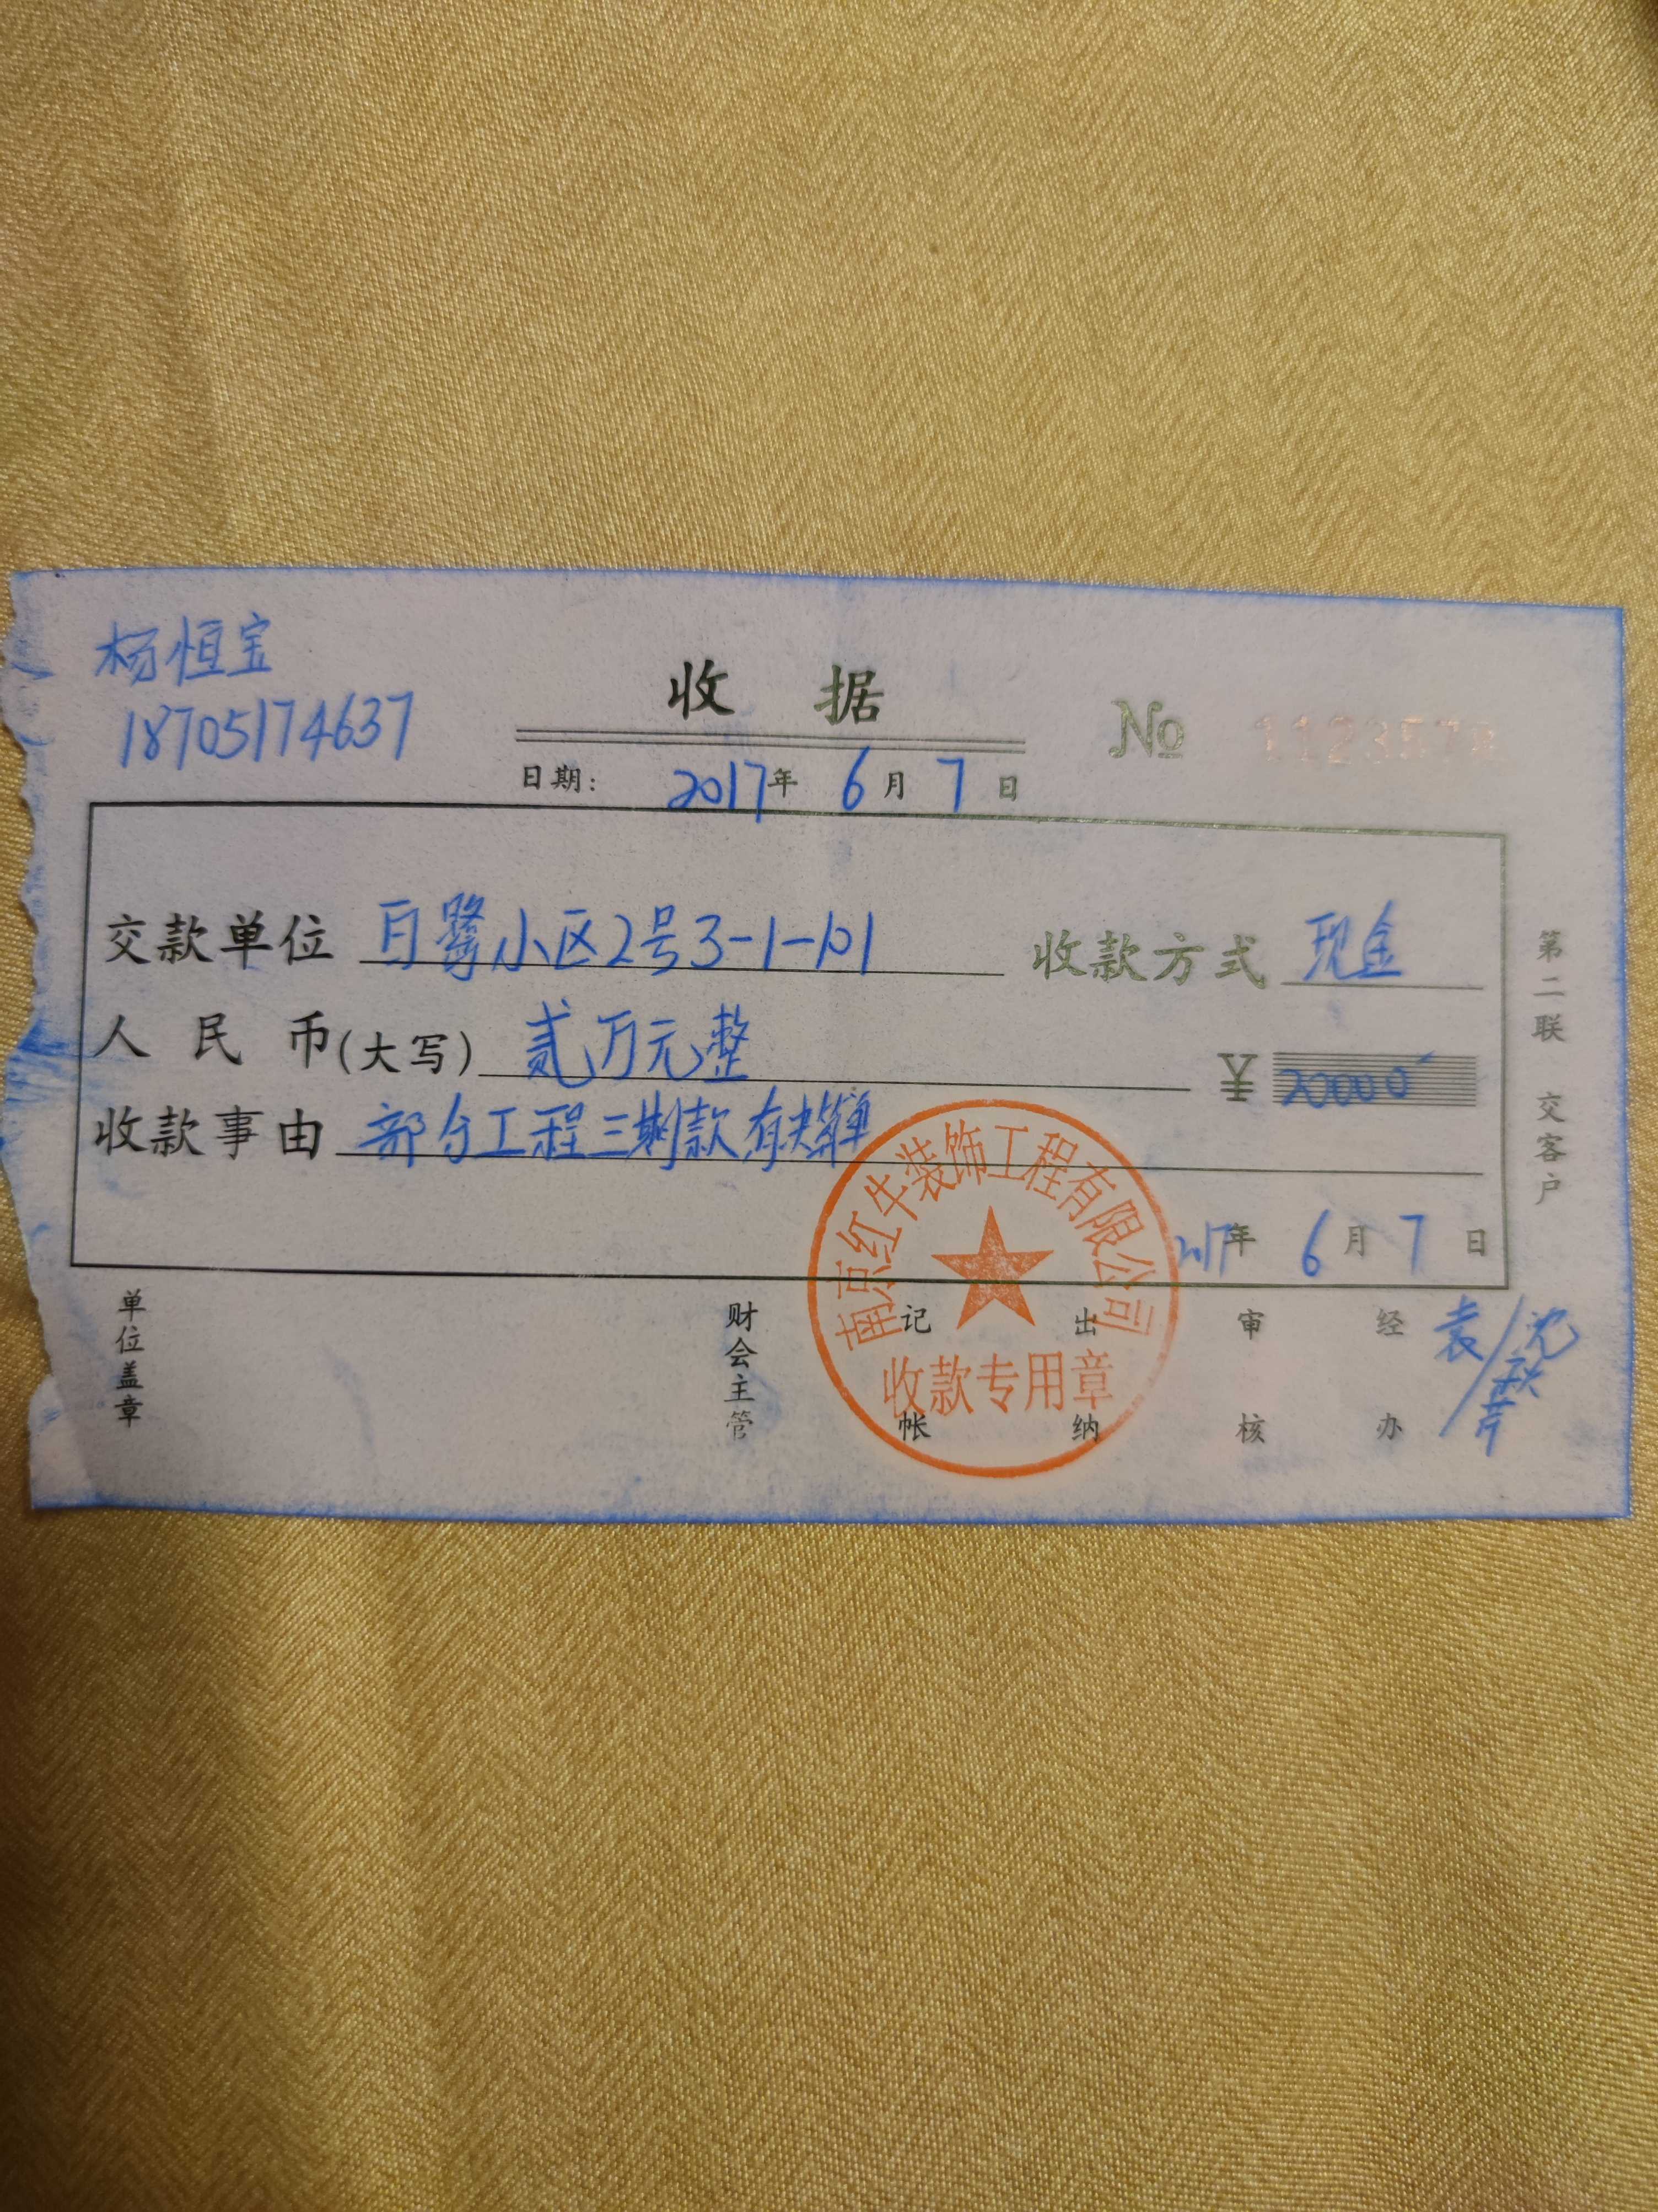 杨恒宝
18705174637
收 据
№
日期： 2017年 6月 7日
交款单位 白鹭小区2号3-1-101 收款方式 现金
人民币(大写) 贰万元整 ¥ 20000
收款事由 部分工程三期款
2017年 6月 7日
南京红牛装饰工程有限公司
收款专用章
单位盖章 财会主管 记帐 出纳 审核 经办 袁/沈
第二联 交客户